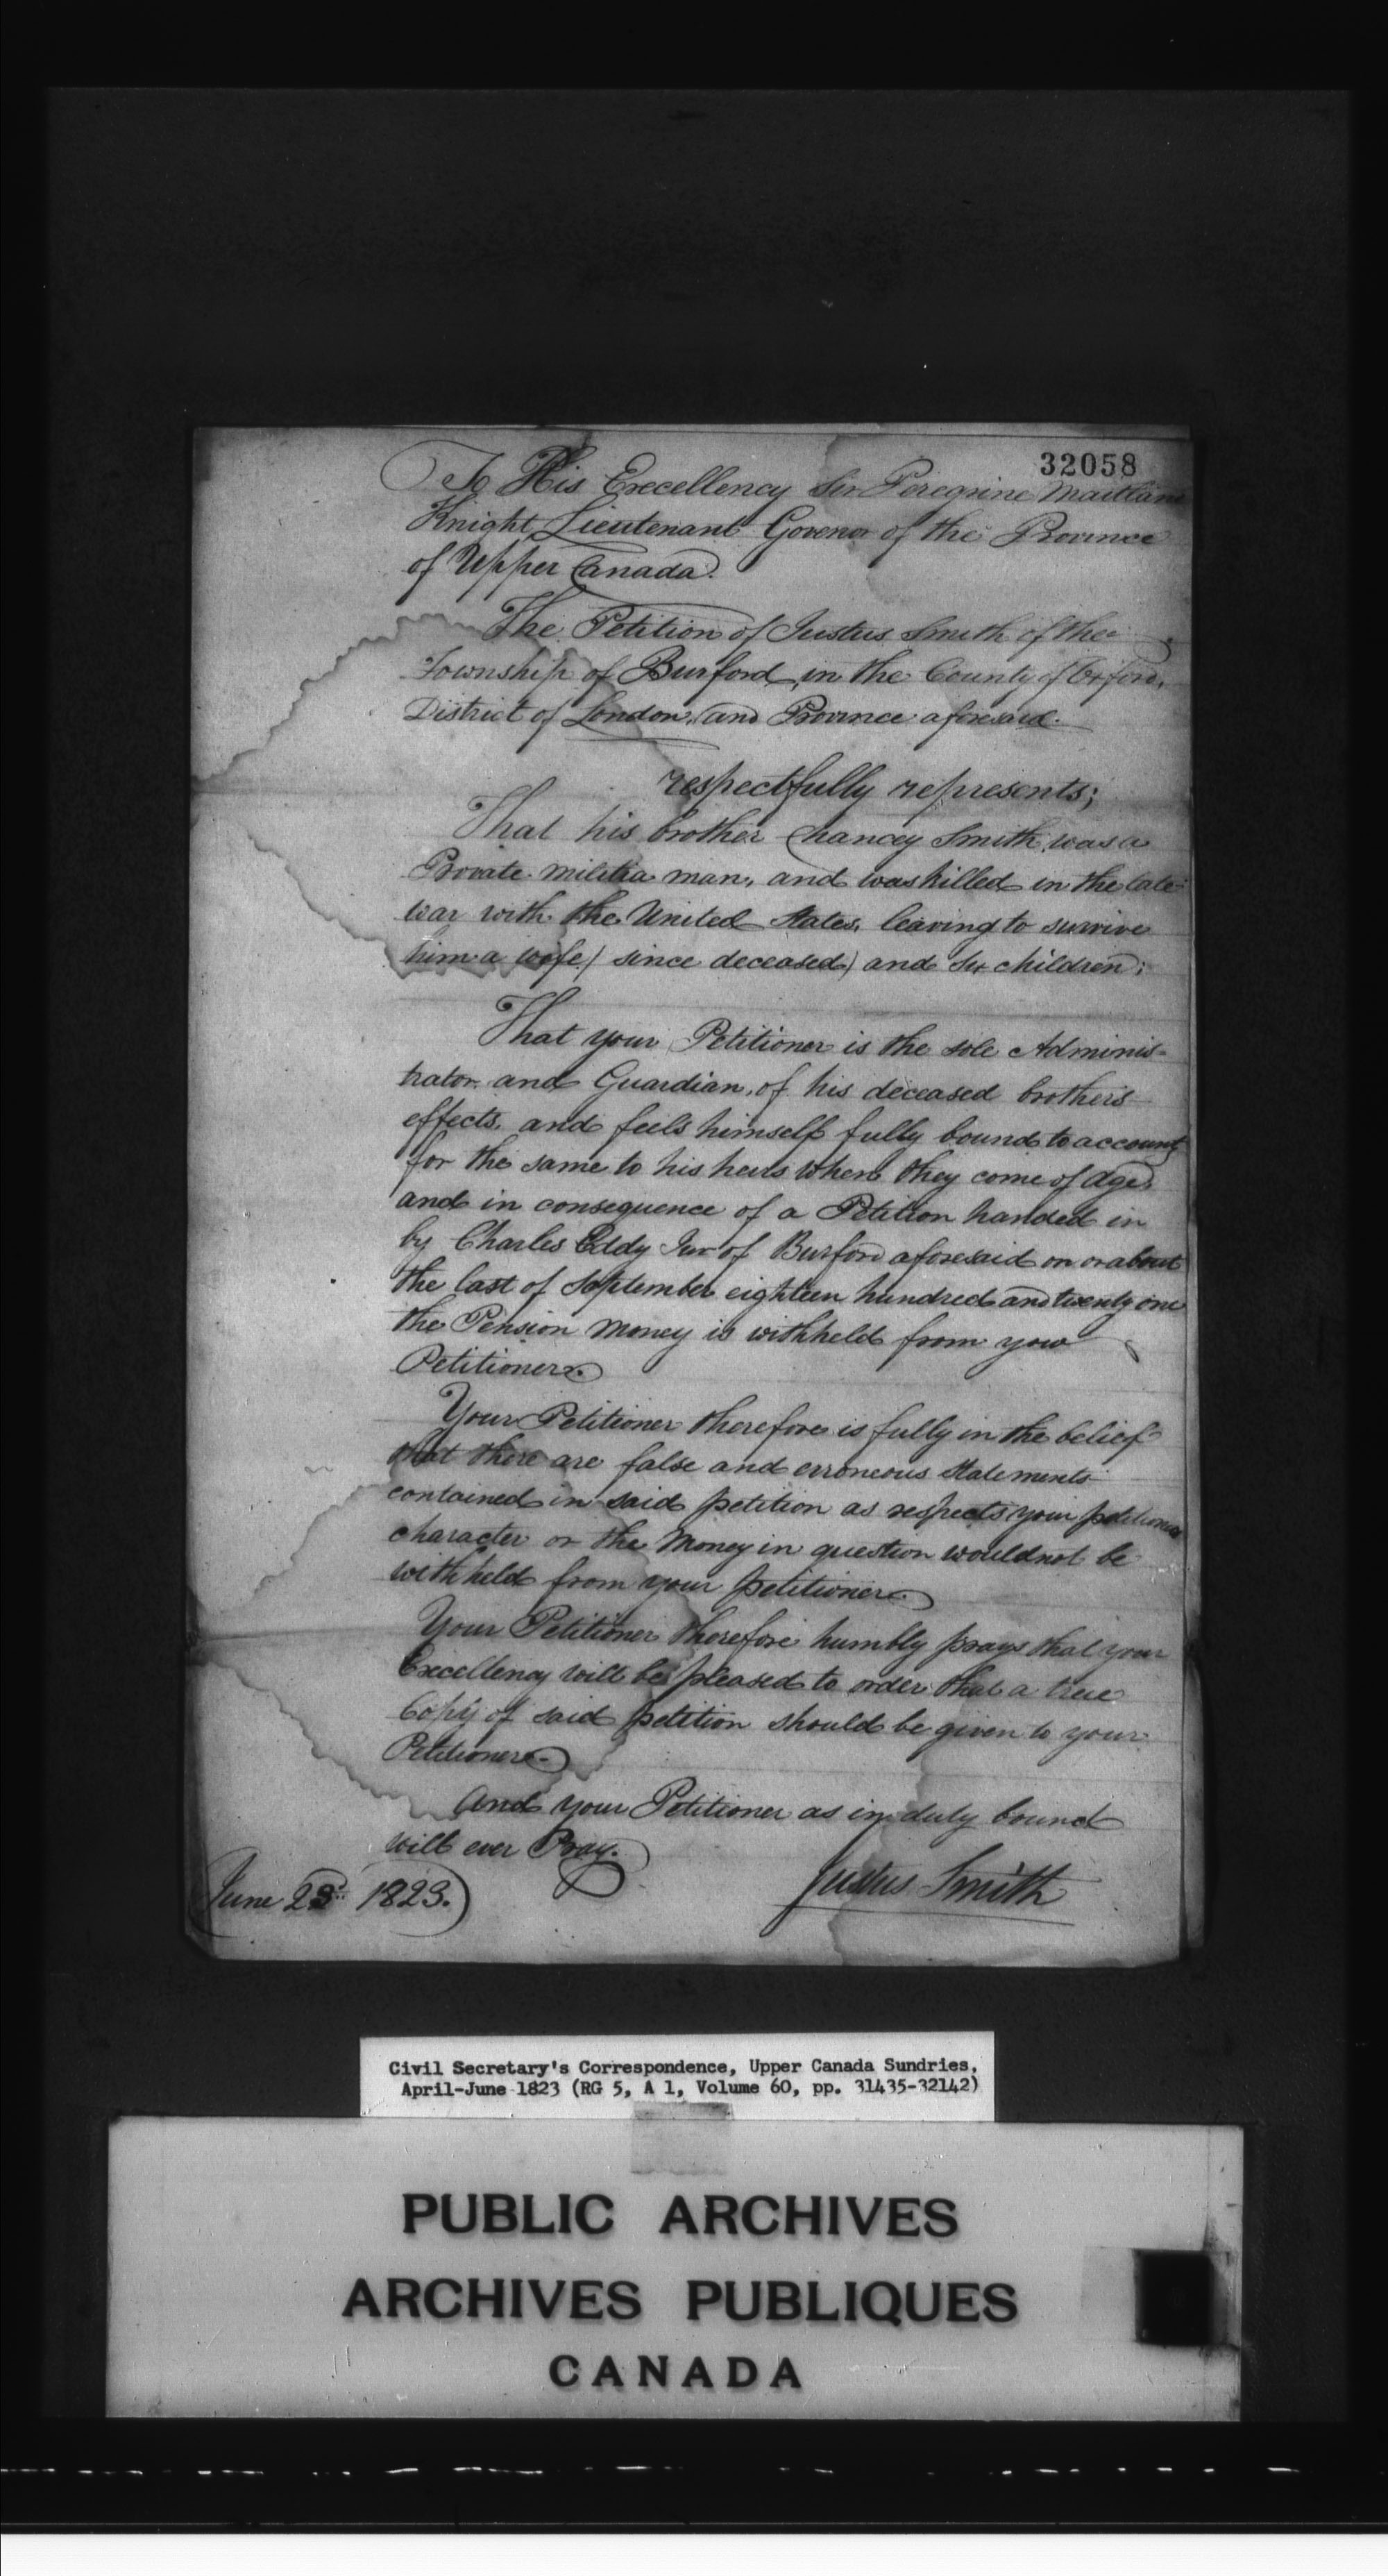 32058
To His Excellency Sir Peregrine Maitland
Knight Lieutenant Govenor of the Province
of Upper Canada.
The Petition of Justus Smith of the
Township of Burford, in the County of Oxford,
District of London, and Province aforesaid.
respectfully represents;
That his brother Chancey Smith, was a
Private militia man, and was killed in the late
war with the United States, leaving to survive
him a wife (since deceased) and six children;
That your Petitioner is the sole Adminis-
trator and Guardian, of his deceased brothers
effects, and feels himself fully bound to account
for the same to his heirs when they come of Age,
and in consequence of a Petition handed in
by Charles Eddy Jur of Burford aforesaid on or about
the last of September eighteen hundred and twenty one
the Pension money is withheld from your
Petitioner.
Your Petitioner therefore is fully in the belief
that there are false and erroneous statements
contained in said petition as respects your petitioners
character or the Money in question would not be
withheld from your petitioner.
Your Petitioner therefore humbly prays that your
Excellency will be pleased to order that a true
Copy of said petition should be given to your
Petitioner.
And your Petitioner as in duty bound
will ever Pray.
June 23d 1823.) Justus Smith
Civil Secretary's Correspondence, Upper Canada Sundries,
April-June 1823 (RG 5, A 1, Volume 60, pp. 31435-32142)
PUBLIC ARCHIVES
ARCHIVES PUBLIQUES
CANADA